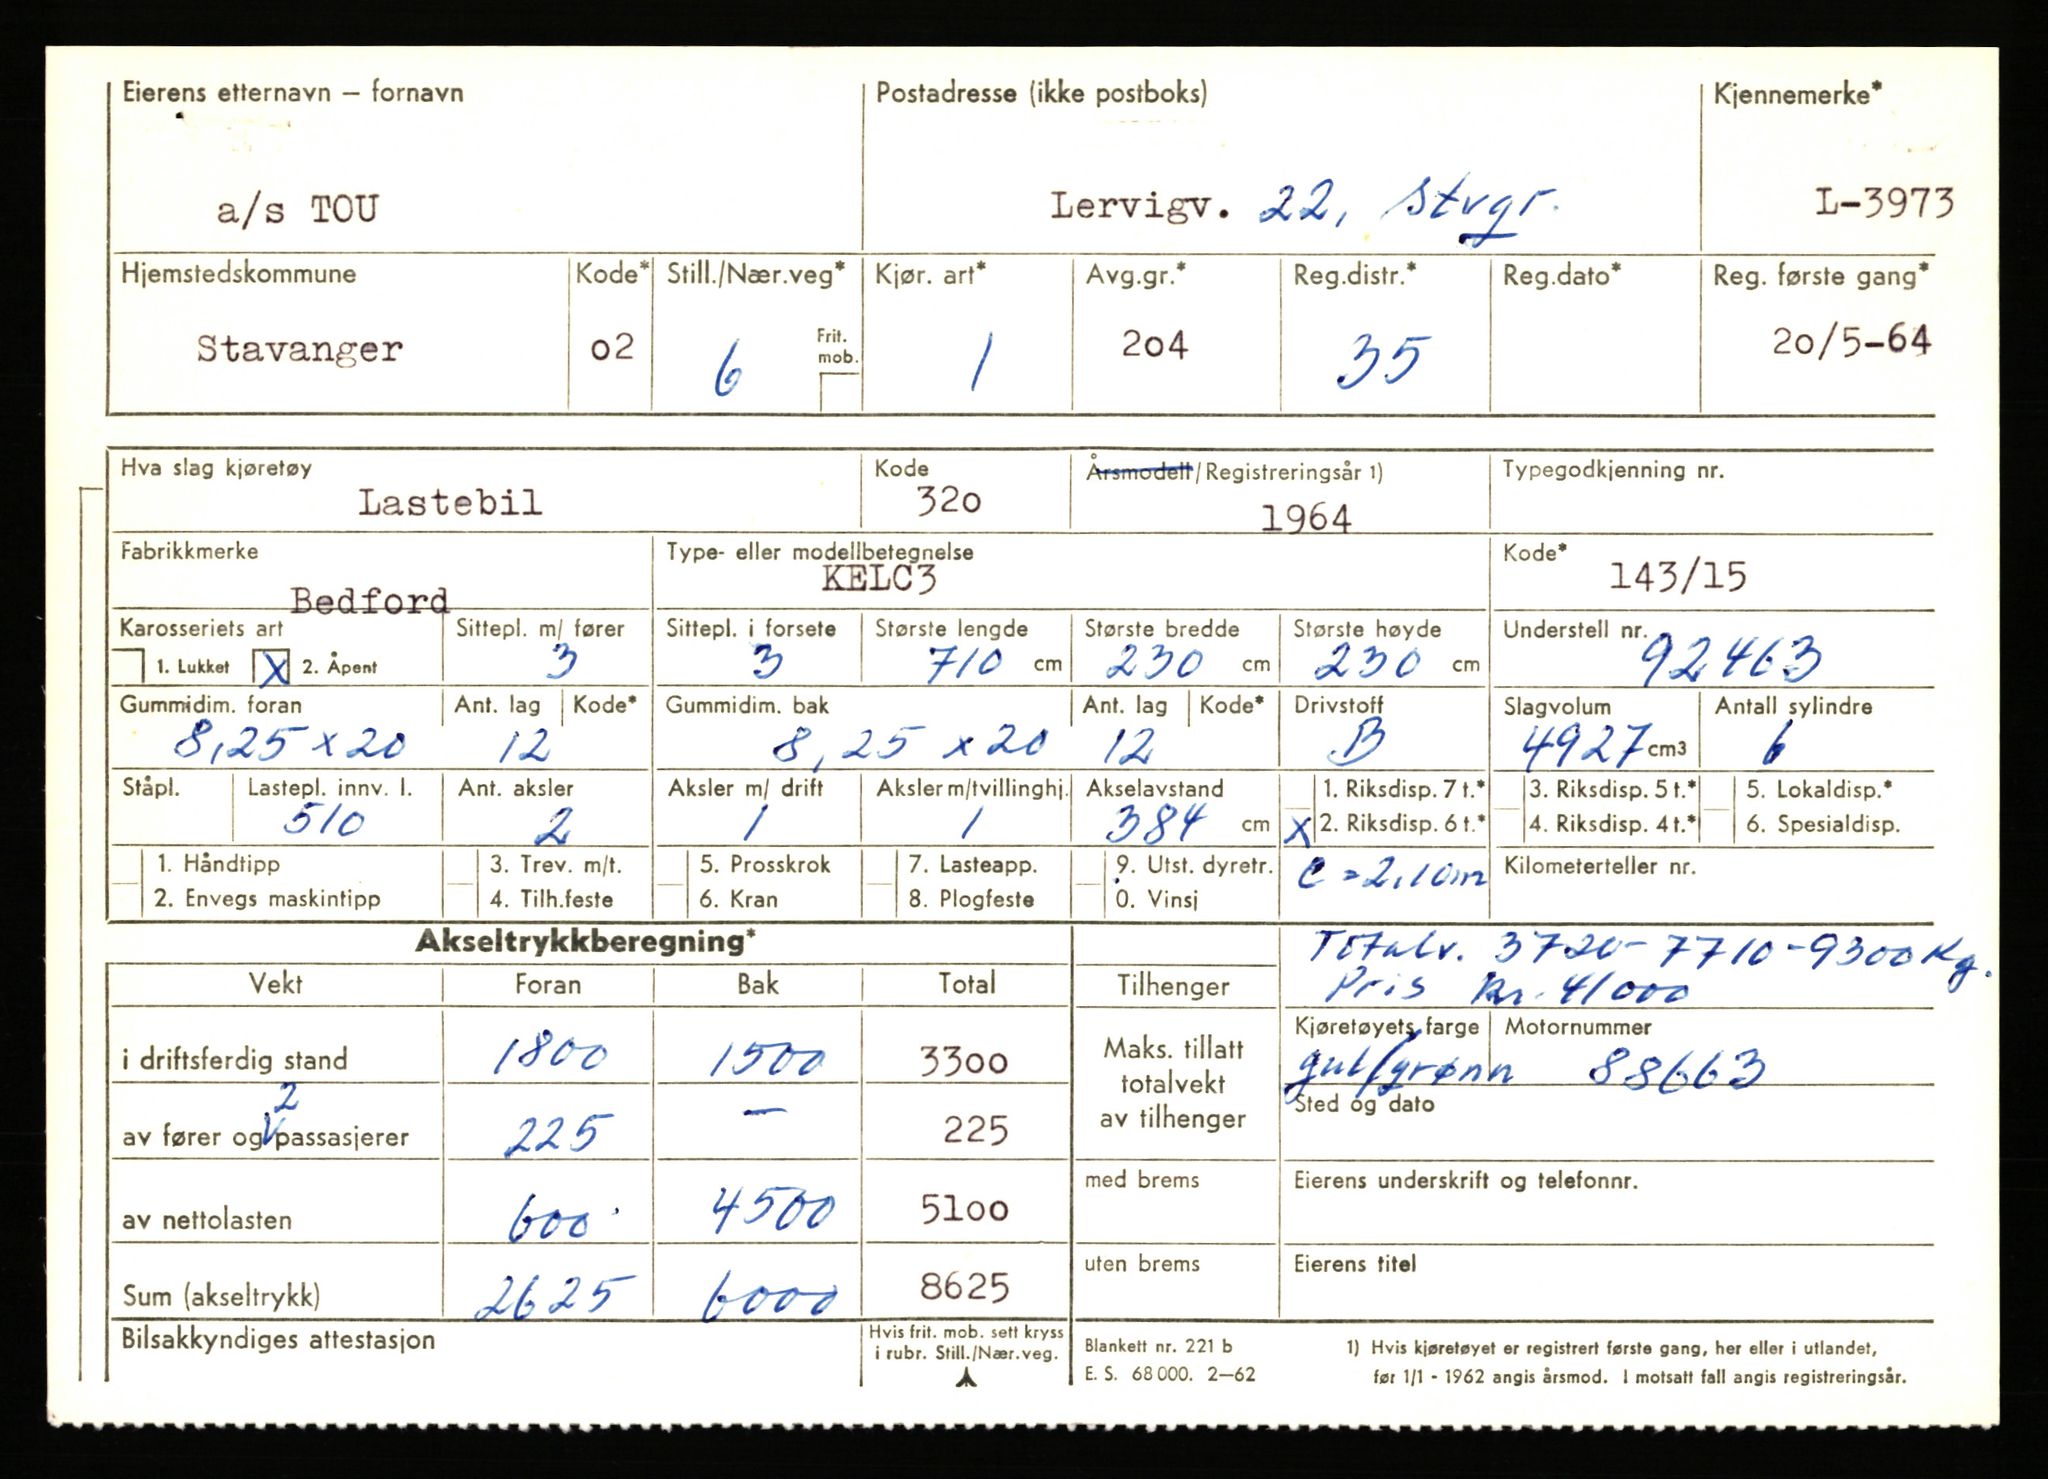 Eierens etternavn – fornavn Postadresse (ikke postboks) Kjennemerke*
a/s TOU Lervigv. 22, Stvgr. L-3973
Hjemstedskommune Kode* Still./Nær.veg* Kjør. art* Avg.gr.* Reg.distr.* Reg.dato* Reg. første gang*
Stavanger 02 6 Frit. mob. 1 204 35 20/5-64
Hva slag kjøretøy Kode Årsmodell/Registreringsår 1) Typegodkjenning nr.
Lastebil 320 1964
Fabrikkmerke Type- eller modellbetegnelse Kode*
Bedford KELC3 143/15
Karosseriets art Sittepl. m/ fører Sittepl. i forsete Største lengde Største bredde Største høyde Understell nr.
1. Lukket X 2. Åpent 3 3 710 cm 230 cm 230 cm 92463
Gummidim. foran Ant. lag Kode* Gummidim. bak Ant. lag Kode* Drivstoff Slagvolum Antall sylindre
8,25 x 20 12 8,25 x 20 12 B 4927 cm3 6
Ståpl. Lastepl. innv. l. Ant. aksler Aksler m/ drift Aksler m/tvillinghj. Akselavstand 1. Riksdisp. 7 t.* 3. Riksdisp. 5 t.* 5. Lokaldisp.*
510 2 1 1 384 cm X 2. Riksdisp. 6 t.* 4. Riksdisp. 4 t.* 6. Spesialdisp.
1. Håndtipp 3. Trev. m/t. 5. Prosskrok 7. Lasteapp. 9. Utst. dyretr. C = 2,10m Kilometerteller nr.
2. Envegs maskintipp 4. Tilh.feste 6. Kran 8. Plogfeste 0. Vinsj
Akseltrykkberegning* Totalv. 3720-7710-9300 Kg.
Vekt Foran Bak Total Tilhenger Pris kr. 41000
Kjøretøyets farge Motornummer
i driftsferdig stand 1800 1500 3300 Maks. tillatt totalvekt av tilhenger gul/grønn 88663
Sted og dato
2
av fører og V passasjerer 225 — 225
med brems Eierens underskrift og telefonnr.
av nettolasten 600 4500 5100
uten brems Eierens titel
Sum (akseltrykk) 2625 6000 8625
Bilsakkyndiges attestasjon Hvis frit. mob. sett kryss Blankett nr. 221 b 1) Hvis kjøretøyet er registrert første gang, her eller i utlandet,
i rubr. Still./Nær.veg. E. S. 68 000. 2–62 før 1/1 - 1962 angis årsmod. I motsatt fall angis registreringsår.